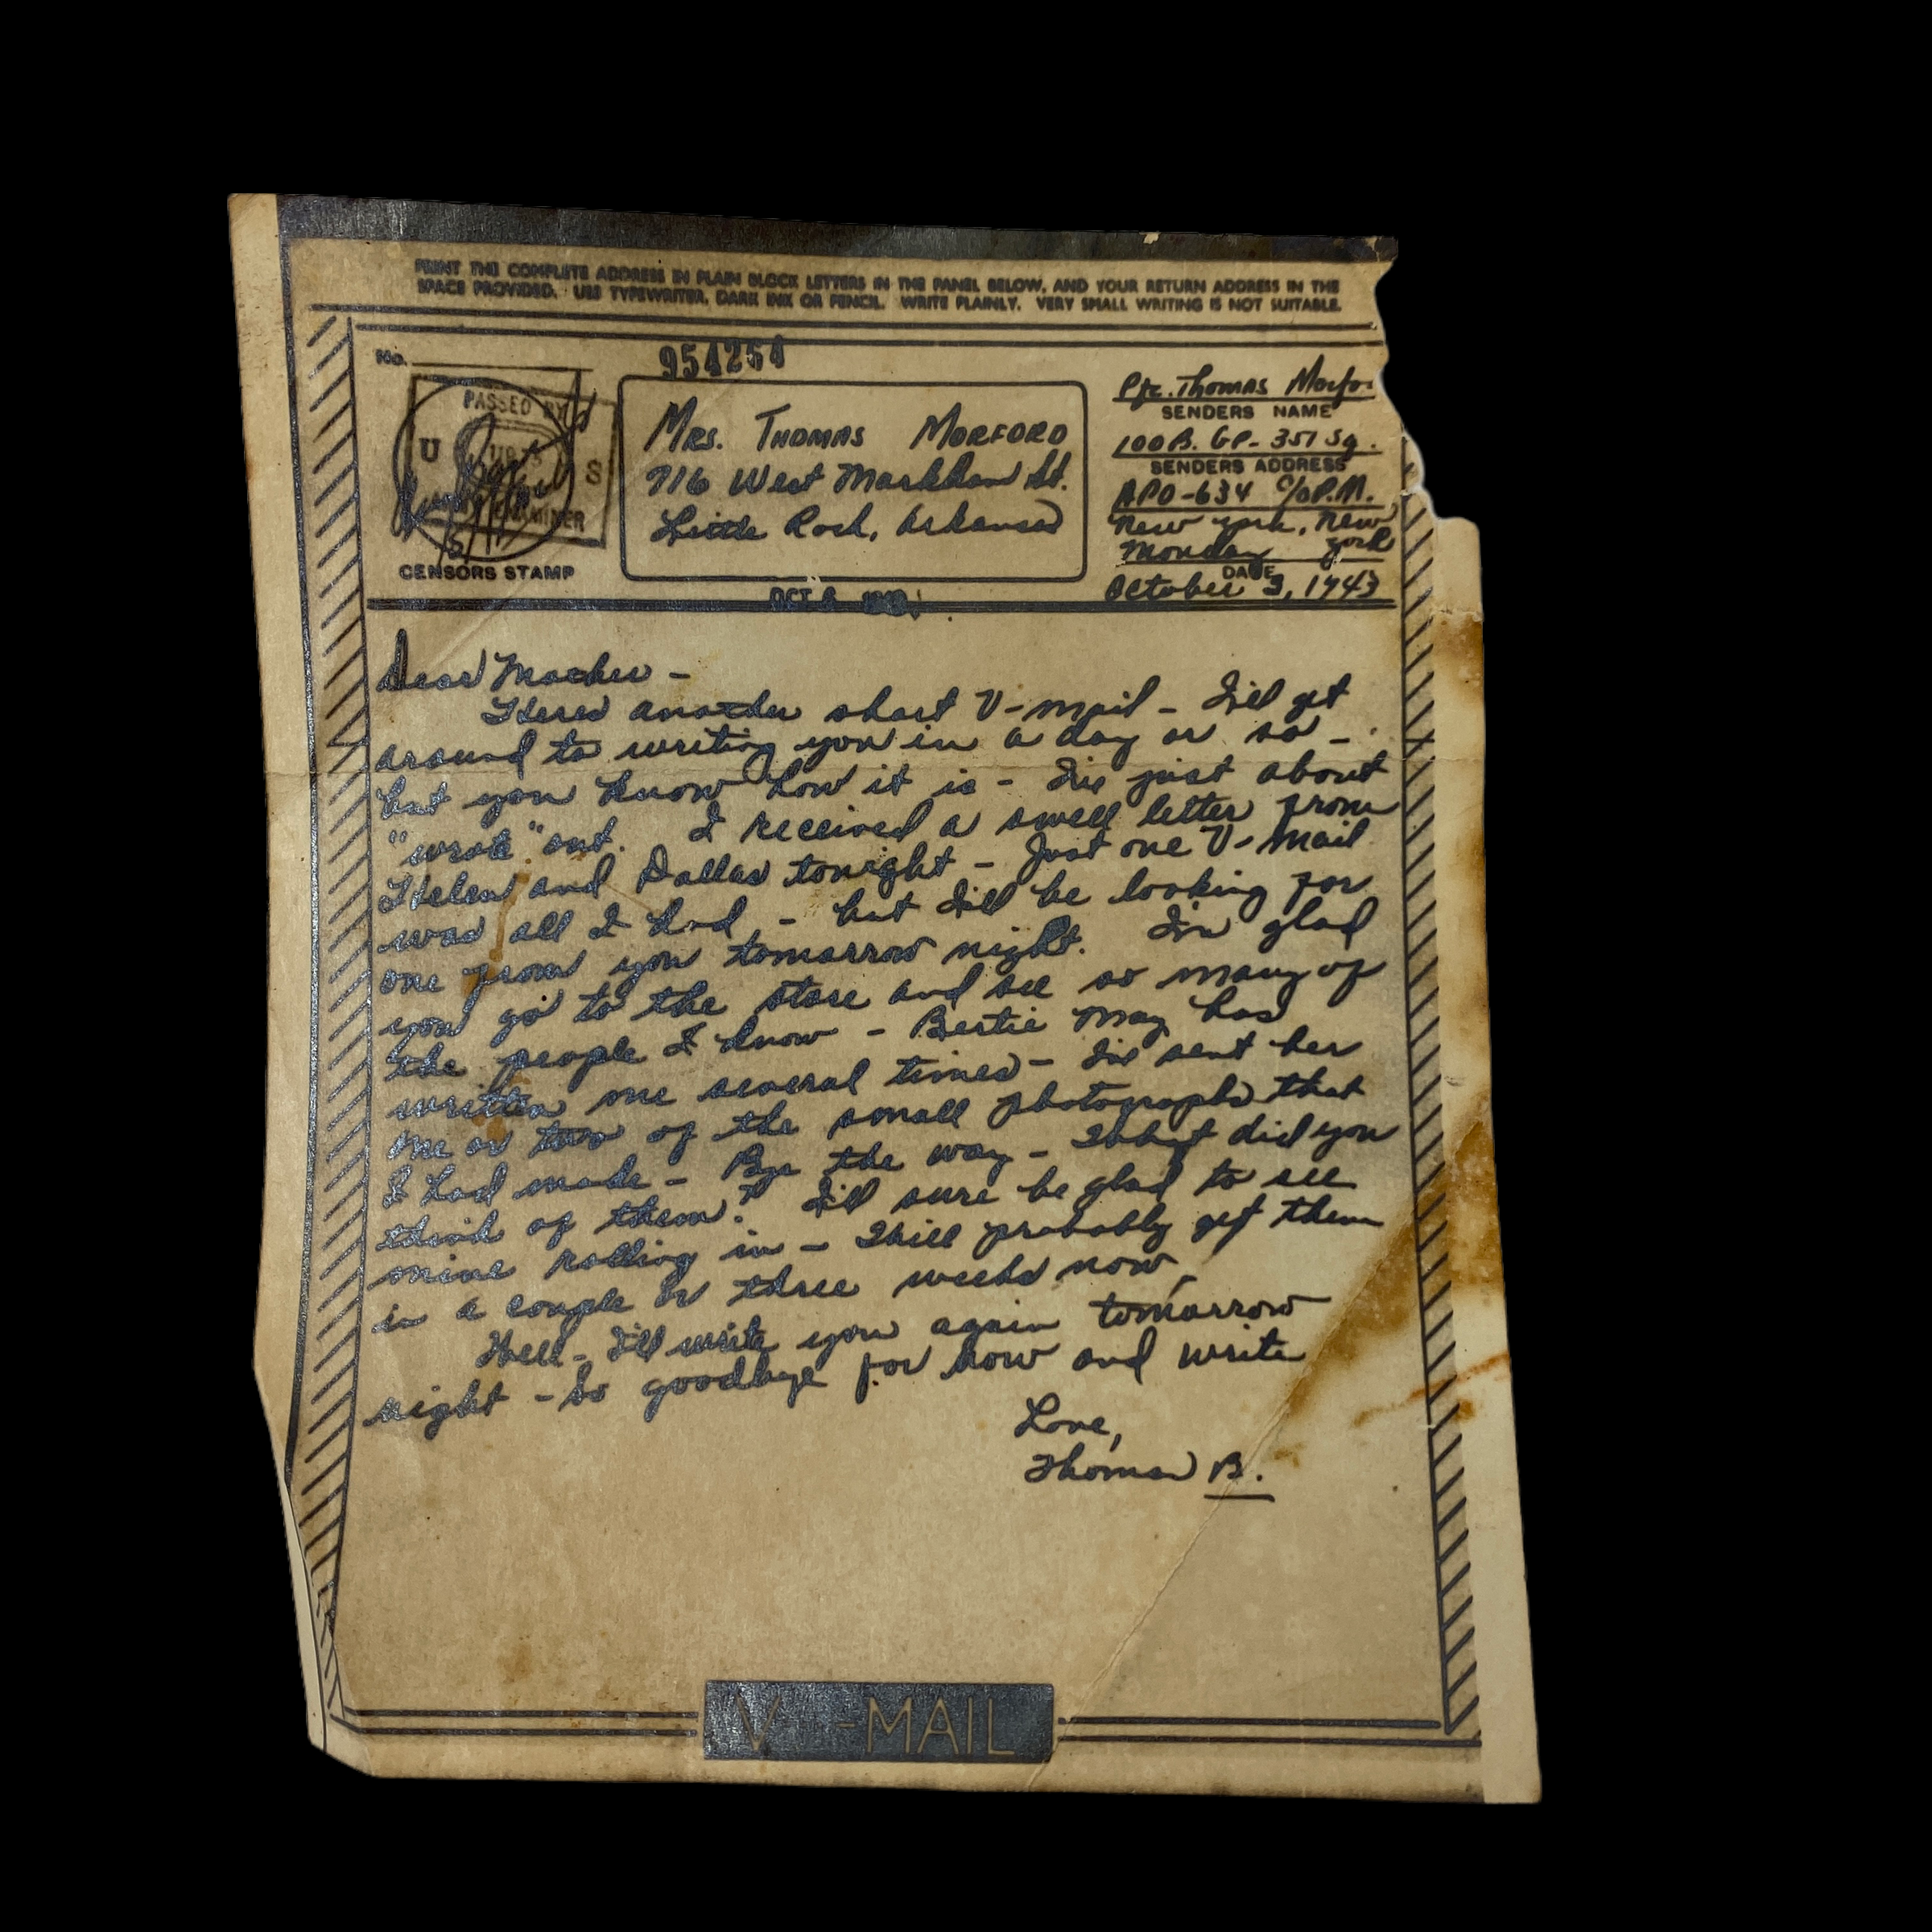 PRINT THE COMPLETE ADDRESS IN PLAIN BLOCK LETTERS IN THE PANEL BELOW, AND YOUR RETURN ADDRESS IN THE
SPACE PROVIDED. USE TYPEWRITER, DARK INK OR PENCIL. WRITE PLAINLY. VERY SMALL WRITING IS NOT SUITABLE.
No.
954264
PASSED BY
U S
EXAMINER
CENSORS STAMP
MRS. THOMAS MORFORD
716 West Markham St.
Little Rock, Arkansas
Pfc. Thomas Morfor
SENDERS NAME
100 B. GP - 351 Sq.
SENDERS ADDRESS
APO-634 c/o P.M.
New York, New
York
Monday
DATE
October 3, 1943
OCT 8
Dear Mother -
Heres another short V-mail - I'll get
around to writing you in a day or so -
but you know how it is - I've just about
"wrote" out. I received a swell letter from
Helen and Dallas tonight - Just one V-Mail
was all I had - but I'll be looking for
one from you tomorrow night. I'm glad
you go to the store and see so many of
the people I know - Bertie May has
written me several times - I've sent her
one or two of the small photographs that
I had made - Bye the way - What did you
think of them? I'll sure be glad to see
mine rolling in - Will probably get them
in a couple or three weeks now.
Well - I'll write you again tomorrow
night - So goodbye for now and write
Love,
Thomas B.
V - MAIL